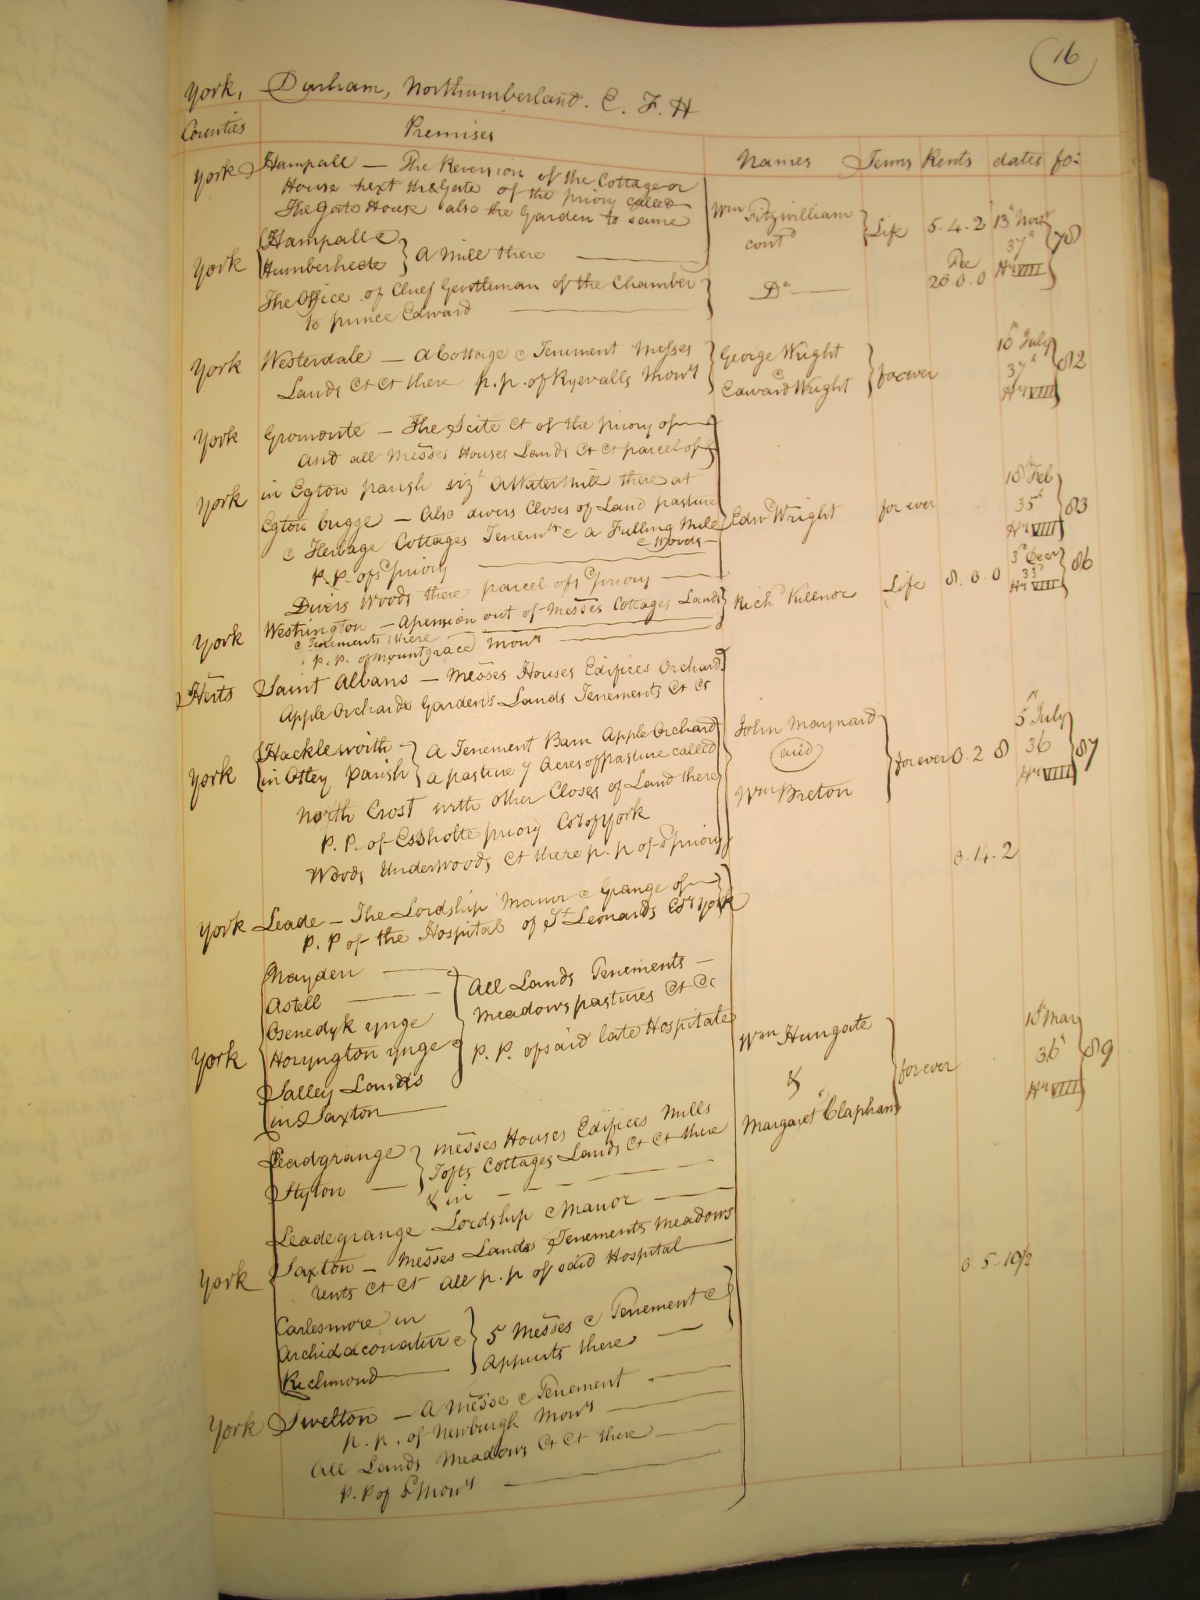 16
York, Durham, Northumberland. E. F. H
Counties Premises Names Terms Rents dates fo:
York Hampall — The Reversion of the Cottage or
House next the Gate of the priory called
The Gate House also the Garden to same
Wm Fitzwilliam contd Life 5. 4. 2 13th Novr 37th Hy VIII 78
York Hampall & Humberhede A Mill there
The Office of Chief Gentleman of the Chamber
to prince Edward
Do Fee 20. 0. 0
York Westerdale — A Cottage & Tenement Messes
Lands &c &c there p. p. of Ryevalls Mony
George Wright
Edward Wright for ever July 37th Hy VIII 82
York Gromonte — The Scite &c of the priory of
and all Messes Houses Lands &c &c parcel of
York in Egton parish vizt A Watermill there at
Egton brigge — Also divers Closes of Land pasture
& Herbage Cottages Tenemts & a Fulling Mill
& Woods
p. p. of sd priory
Divers Woods there parcel of sd priory
Edwd Wright for ever 18th Feb 35th Hy VIII 83
York Westrington — A pension out of Messes Cottages Lands
& Tenements there
p. p. of Mountgrace Mony
Richd Killnor Life 8. 0. 0 3d Decr 33d Hy VIII 86
Herts Saint Albans — Messes Houses Edifices Orchard
Apple Orchards Gardens Lands Tenements &c &c
York Hackleworth in Otley parish A Tenement Barn Apple Orchard
a pasture 7 Acres of pasture called
North Crost with other Closes of Land there
p. p. of Essholte priory Co of York
Woods Underwoods &c there p. p. of sd priory
John Maynard
and
Wm Breton
for ever 0. 2 8 5th July 36 Hy VIII 87
0. 14. 2
York Leade — The Lordship Manor & Grange of
p. p of the Hospital of St Leonards Coy York
Hayden
Astell
Osenedyk ynge
York Horyngton ynge
Salley Lands
in Saxton
All Lands Tenements
Meadows pastures &c &c
p. p. of said late Hospitale
Wm Hungate
&
Margaret Clapham
for ever Mar 36 Hy VIII 89
Leadgrange
Styton
Messes Houses Edifices Mills
Tofts Cottages Lands &c &c there
& in
Leadegrange Lordship & Manor
York Saxton — Messes Lands Tenements Meadows
rents &c &c all p. p of said Hospital
0. 5. 10½
Carlesmore in
Archidaconature
Richmond
5 Messes & Tenement &
Appurts there
York Swelton — A Messe & Tenement
p. p. of Newburgh Mony
All Lands Meadows &c &c there
p. p of sd Mony